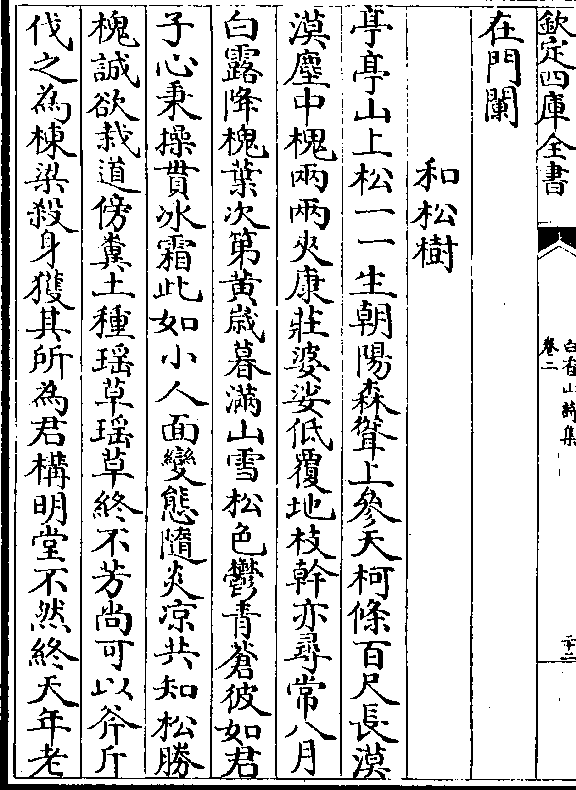 欽定四庫全書
白香山詩集
卷二
二十二
在門闌
和松樹
亭亭山上松一一生朝陽森聳上參天柯條百尺長漠
漠塵中槐兩兩夾康莊婆娑低覆地枝幹亦尋常八月
白露降槐葉次第黄歳暮滿山雪松色鬱青蒼彼如君
子心秉操貫冰霜此如小人面變態隨炎凉共知松勝
槐誠欲栽道傍糞土種瑶草瑶草終不芳尚可以斧斤
伐之為棟梁殺身獲其所為君構明堂不然終天年老